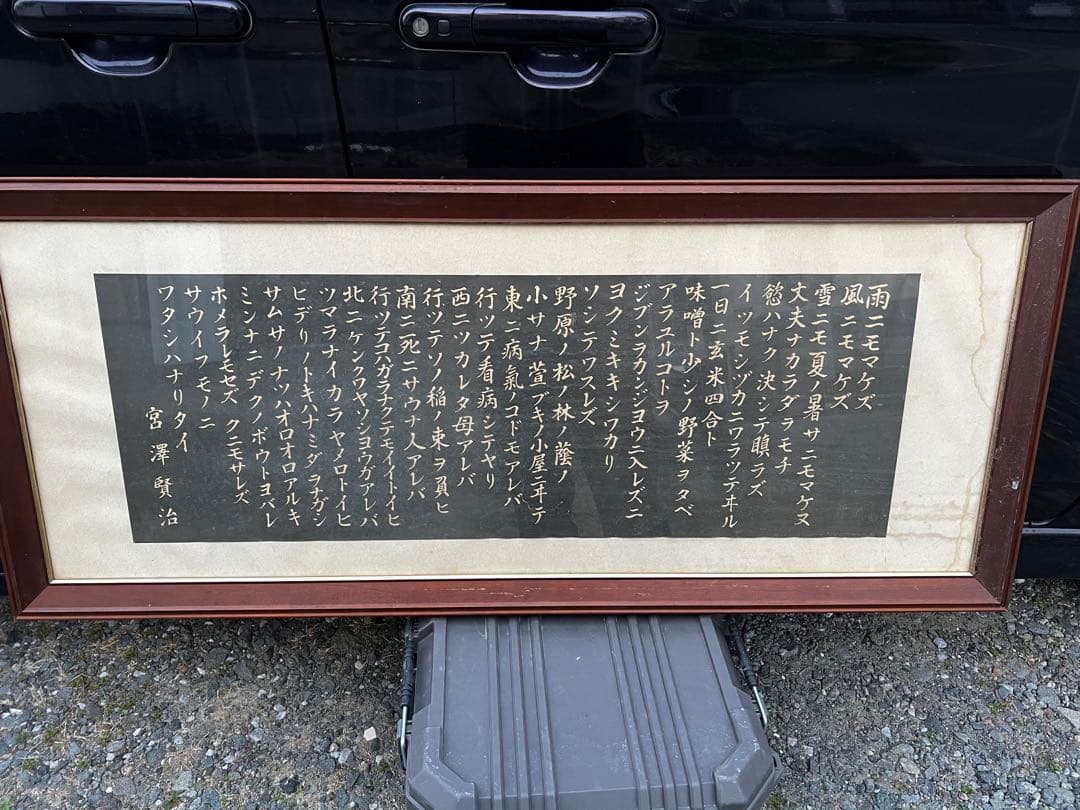 雨ニモマケズ
風ニモマケズ
雪ニモ夏ノ暑サニモマケヌ
丈夫ナカラダヲモチ
慾ハナク決シテ瞋ラズ
イツモシヅカニワラッテヰル
一日ニ玄米四合ト
味噌ト少シノ野菜ヲタベ
アラユルコトヲ
ジブンヲカンジョウニ入レズニ
ヨクミキキシワカリ
ソシテワスレズ
野原ノ松ノ林ノ蔭ノ
小サナ萱ブキノ小屋ニヰテ
東ニ病氣ノコドモアレバ
行ツテ看病シテヤリ
西ニツカレタ母アレバ
行ツテソノ稲ノ束ヲ負ヒ
南ニ死ニサウナ人アレバ
行ツテコハガラナクテモイイトイヒ
北ニケンクヮヤソショウガアレバ
ツマラナイカラヤメロトイヒ
ヒデリノトキハナミダヲナガシ
サムサノナツハオロオロアルキ
ミンナニデクノボウトヨバレ
ホメラレモセズ クニモサレズ
サウイフモノニ
ワタシハナリタイ
宮澤賢治